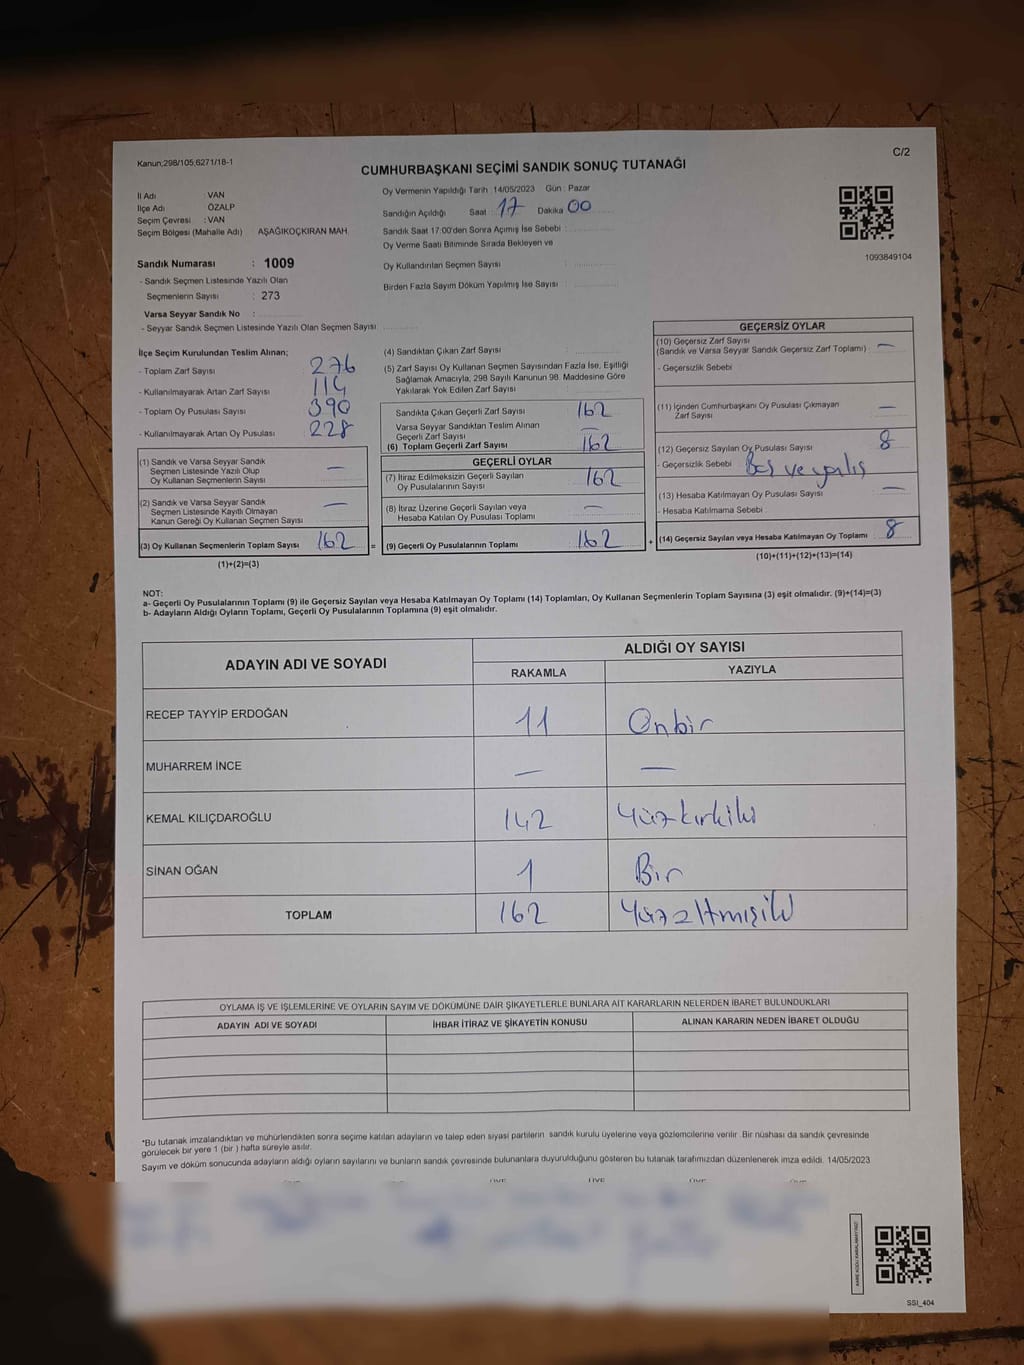 Kanun;298/105;6271/18-1
C/2
CUMHURBAŞKANI SEÇİMİ SANDIK SONUÇ TUTANAĞI
İl Adı : VAN
İlçe Adı : ÖZALP
Seçim Çevresi : VAN
Seçim Bölgesi (Mahalle Adı) AŞAĞIKOÇKIRAN MAH.
Oy Vermenin Yapıldığı Tarih :14/05/2023 Gün : Pazar
Sandığın Açıldığı Saat : 17 Dakika 00
Sandık Saat 17:00'den Sonra Açımış İse Sebebi :
Oy Verme Saati Bitiminde Sırada Bekleyen ve
Oy Kullandırılan Seçmen Sayısı :
Birden Fazla Sayım Döküm Yapılmış İse Sayısı :
1093849104
Sandık Numarası : 1009
- Sandık Seçmen Listesinde Yazılı Olan
Seçmenlerin Sayısı : 273
Varsa Seyyar Sandık No :
- Seyyar Sandık Seçmen Listesinde Yazılı Olan Seçmen Sayısı
İlçe Seçim Kurulundan Teslim Alınan;
- Toplam Zarf Sayısı 276
- Kullanılmayarak Artan Zarf Sayısı 114
- Toplam Oy Pusulası Sayısı 390
- Kullanılmayarak Artan Oy Pusulası 228
(1) Sandık ve Varsa Seyyar Sandık
Seçmen Listesinde Yazılı Olup
Oy Kullanan Seçmenlerin Sayısı —
(2) Sandık ve Varsa Seyyar Sandık
Seçmen Listesinde Kayıtlı Olmayan
Kanun Gereği Oy Kullanan Seçmen Sayısı —
(3) Oy Kullanan Seçmenlerin Toplam Sayısı 162 =
(1)+(2)=(3)
(4) Sandıktan Çıkan Zarf Sayısı
(5) Zarf Sayısı Oy Kullanan Seçmen Sayısından Fazla İse, Eşitliği
Sağlamak Amacıyla; 298 Sayılı Kanunun 98. Maddesine Göre
Yakılarak Yok Edilen Zarf Sayısı
Sandıkta Çıkan Geçerli Zarf Sayısı 162
Varsa Seyyar Sandıktan Teslim Alınan
Geçerli Zarf Sayısı —
(6) Toplam Geçerli Zarf Sayısı 162
GEÇERLİ OYLAR
(7) İtiraz Edilmeksizin Geçerli Sayılan
Oy Pusulalarının Sayısı 162
(8) İtiraz Üzerine Geçerli Sayılan veya
Hesaba Katılan Oy Pusulası Toplamı —
(9) Geçerli Oy Pusulalarının Toplamı 162 +
GEÇERSİZ OYLAR
(10) Geçersiz Zarf Sayısı
(Sandık ve Varsa Seyyar Sandık Geçersiz Zarf Toplamı) : —
- Geçersizlik Sebebi
(11) İçinden Cumhurbaşkanı Oy Pusulası Çıkmayan
Zarf Sayısı —
(12) Geçersiz Sayılan Oy Pusulası Sayısı 8
- Geçersizlik Sebebi Boş ve yanlış
(13) Hesaba Katılmayan Oy Pusulası Sayısı —
- Hesaba Katılmama Sebebi
(14) Geçersiz Sayılan veya Hesaba Katılmayan Oy Toplamı 8
(10)+(11)+(12)+(13)=(14)
NOT:
a- Geçerli Oy Pusulalarının Toplamı (9) ile Geçersiz Sayılan veya Hesaba Katılmayan Oy Toplamı (14) Toplamları, Oy Kullanan Seçmenlerin Toplam Sayısına (3) eşit olmalıdır. (9)+(14)=(3)
b- Adayların Aldığı Oyların Toplamı, Geçerli Oy Pusulalarının Toplamına (9) eşit olmalıdır.
ADAYIN ADI VE SOYADI
ALDIĞI OY SAYISI
RAKAMLA YAZIYLA
RECEP TAYYİP ERDOĞAN 11 Onbir
MUHARREM İNCE — —
KEMAL KILIÇDAROĞLU 142 Yüzkırkiki
SİNAN OĞAN 1 Bir
TOPLAM 162 Yüzaltmışiki
OYLAMA İŞ VE İŞLEMLERİNE VE OYLARIN SAYIM VE DÖKÜMÜNE DAİR ŞİKAYETLERLE BUNLARA AİT KARARLARIN NELERDEN İBARET BULUNDUKLARI
ADAYIN ADI VE SOYADI İHBAR İTİRAZ VE ŞİKAYETİN KONUSU ALINAN KARARIN NEDEN İBARET OLDUĞU
*Bu tutanak imzalandıktan ve mühürlendikten sonra seçime katılan adayların ve talep eden siyasi partilerin sandık kurulu üyelerine veya gözlemcilerine verilir .Bir nüshası da sandık çevresinde
görülecek bir yere 1 (bir ) hafta süreyle asılır.
Sayım ve döküm sonucunda adayların aldığı oyların sayılarını ve bunların sandık çevresinde bulunanlara duyurulduğunu gösteren bu tutanak tarafımızdan düzenlenerek imza edildi. 14/05/2023
SSI_404